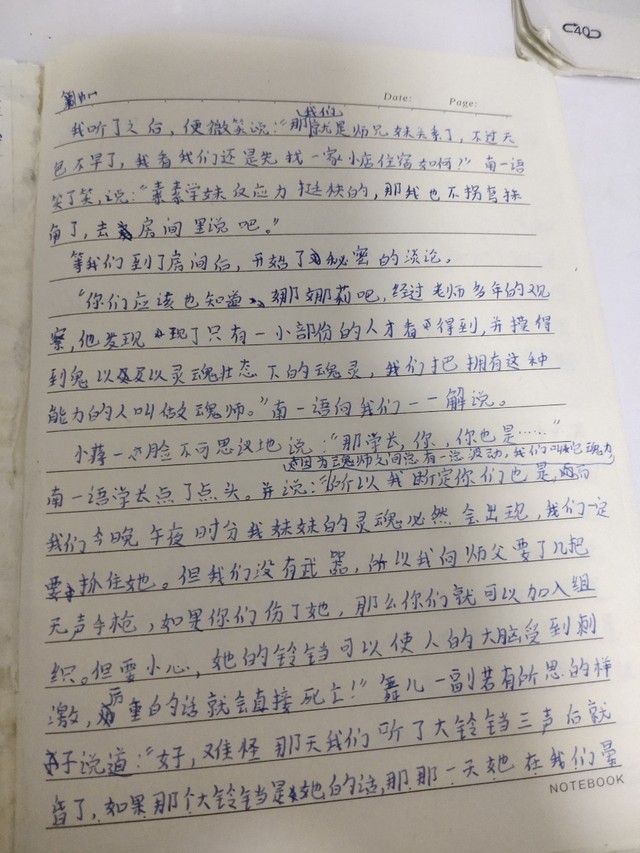 C40
Date: Page:
我们
我听了之后，便微笑说："那就是师兄妹关系了，不过天
色不早了，我看我们还是先找一家小店住宿如何？"南一语
笑了笑，说："素素学妹反应力挺快的，那我也不拐弯抹
角了，去房间里说吧。"
等我们到了房间后，开始了秘密的谈论。
"你们应该也知道娜娜莉吧，经过老师多年的观
察，他发现现了只有一小部份的人才看得到，并摸得
到鬼以及以灵魂壮态下的魂灵，我们把拥有这种
能力的人叫做魂师。"南一语向我们一一解说。
小薄一脸不可思议地说："那学长，你，你也是……"
因为魂师之间总有一些波动，我们叫它魂力，
南一语学长点了点头。并说："所以我断定你们也是，而
我们今晚午夜时分我妹妹的灵魂必然会出现，我们一定
要抓住她。但我们没有武器，所以我向师父要了几把
无声手枪，如果你们伤了她，那么你们就可以加入组
织。但要小心，她的铃铛可以使人的大脑受到刺
激，厉重的话就会直接死亡！"舞儿一副若有所思的样
子说道："好，难怪那天我们听了大铃铛三声后就
昏了，如果那个大铃铛是她的话，那那一天她在我们晕
NOTEBOOK